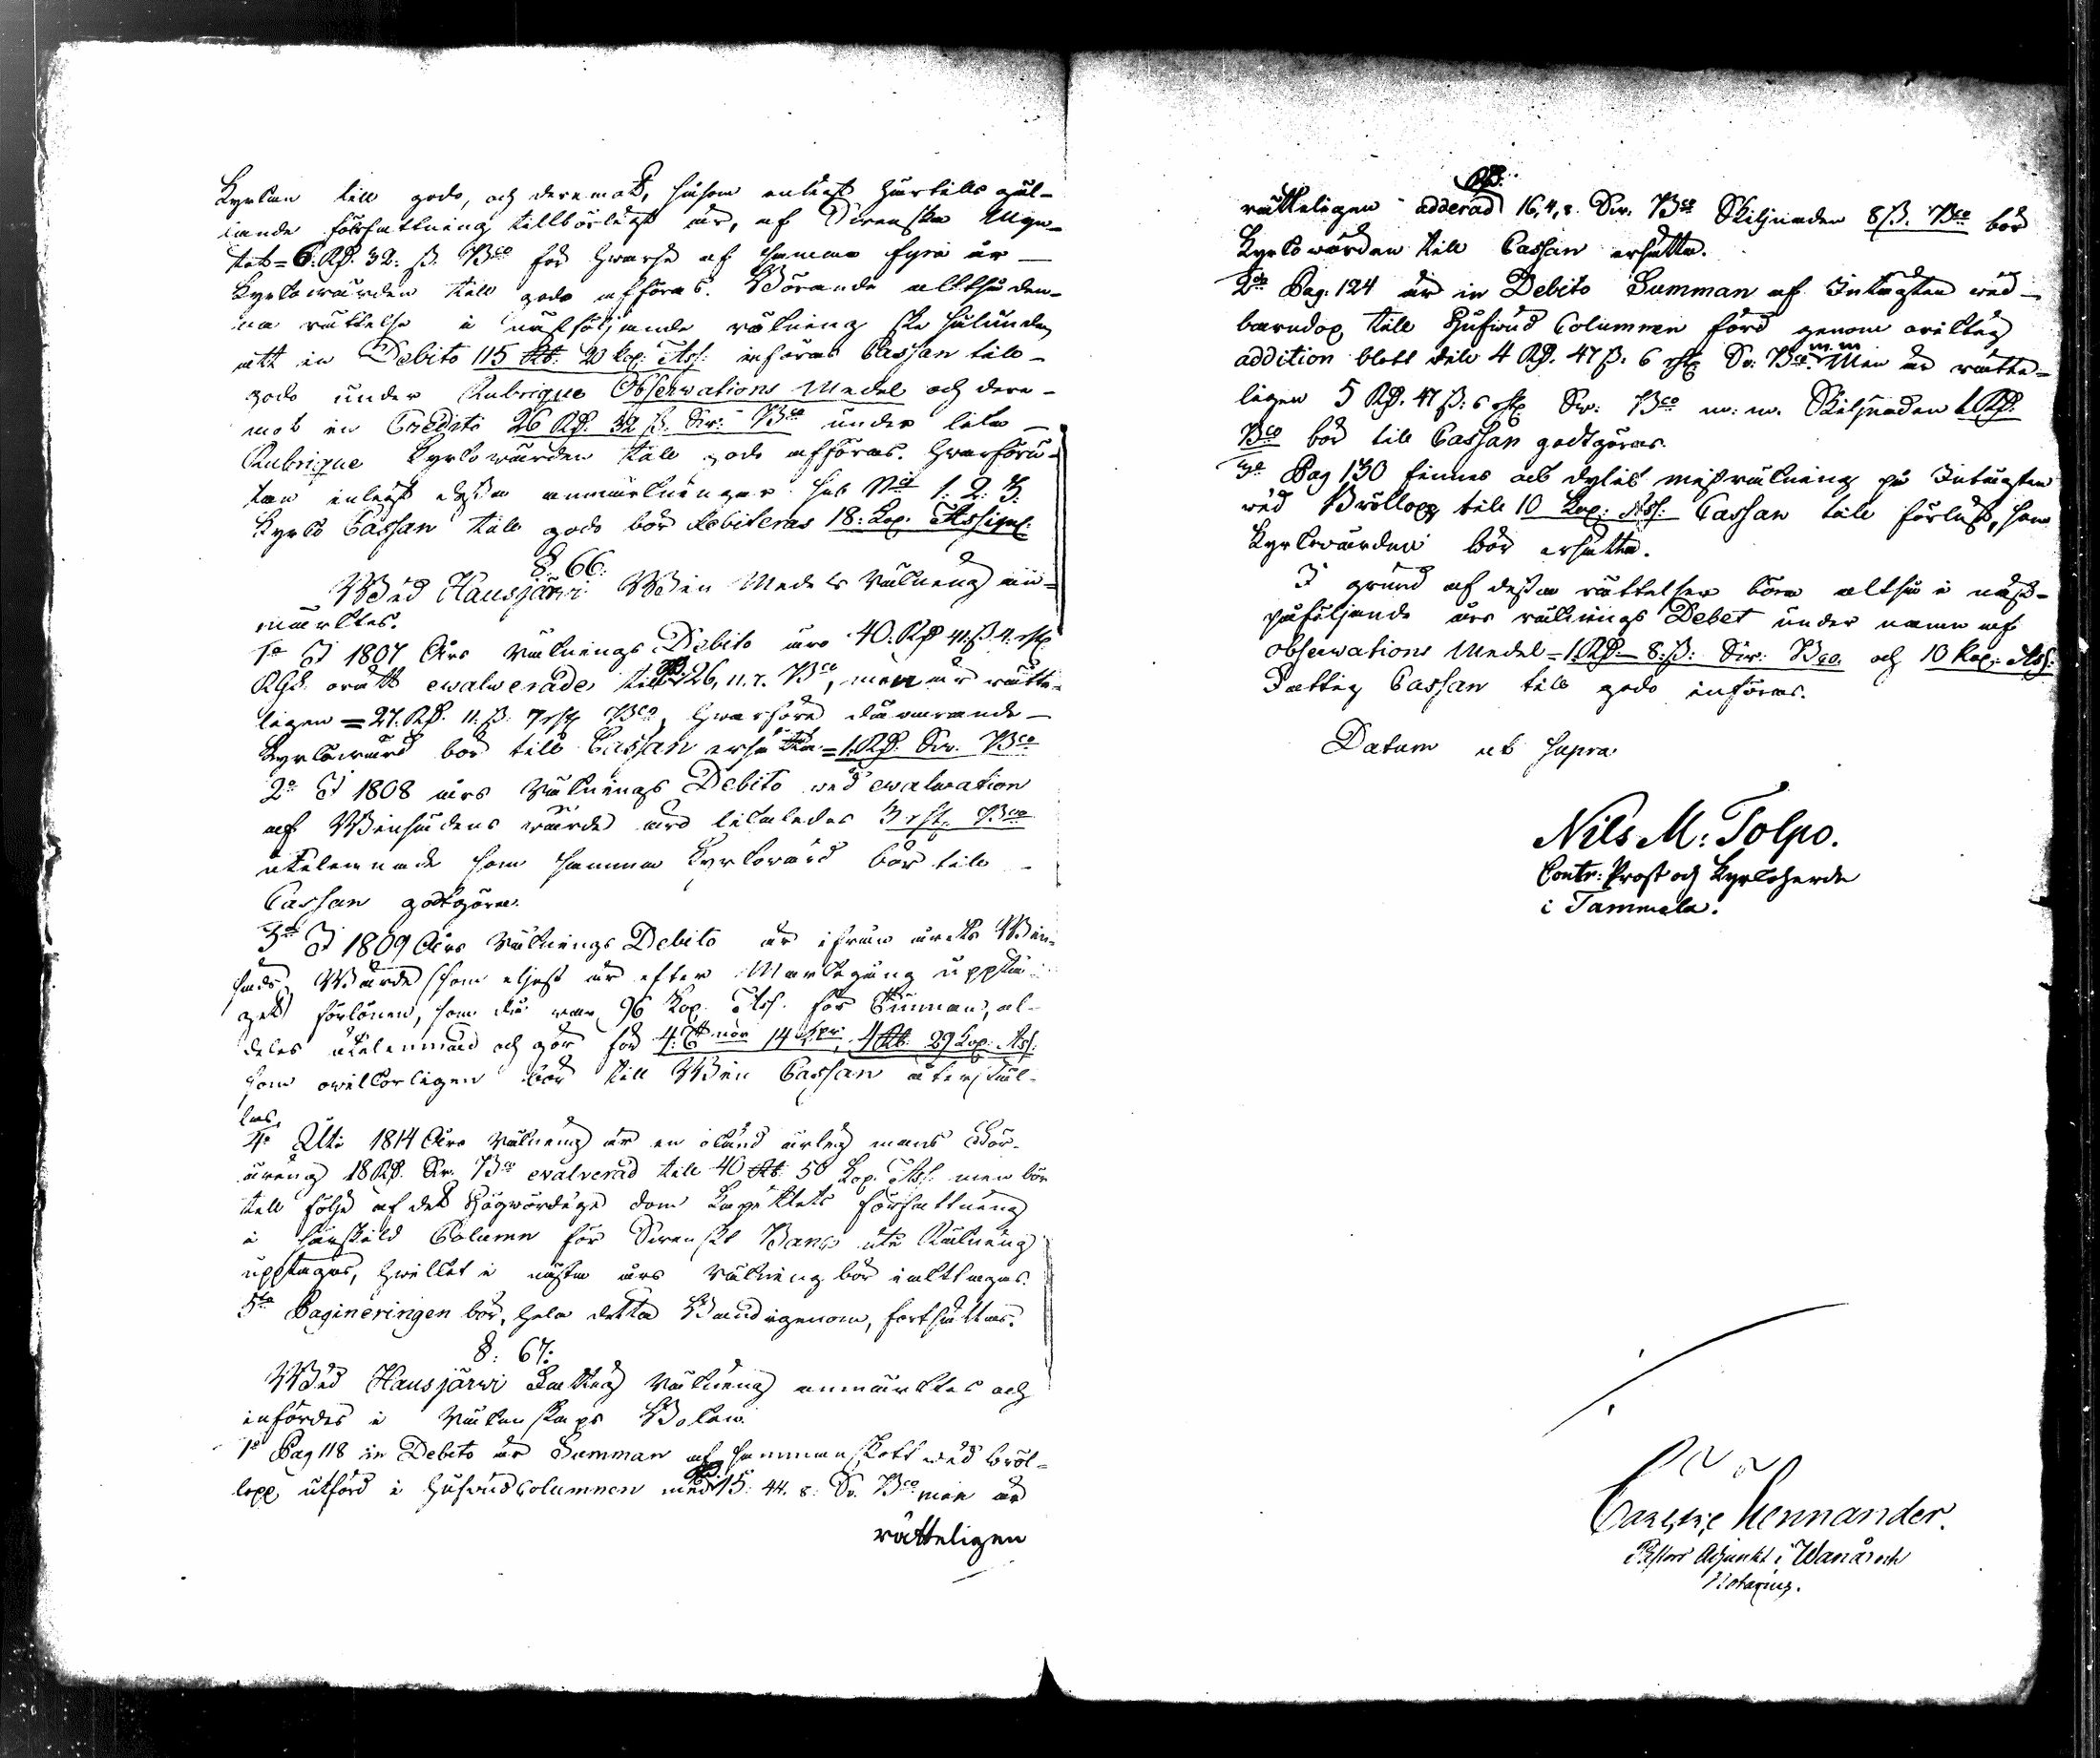 Kyrkan till godo, och deremot, såsom enligt härtills gäl-
lande författning tillbörligt är, af Svenska Myn-
tet = 6. RD. 32. ß. Bco för hwarje af samma fyra år —
Kyrkowärden till godo afföras. Börande altså den-
na rättelse i nästföljande räkning ske sålunda,
att in Debito 115 Rb. 20 kop: Ass: införas Cassan till-
godo under Rubrique Observations Medel och dere-
mot in Credito 26 RD. 32 ß. Sv: Bco under lika —
Rubrique Kyrkowärden till godo afföras. Hwarförü-
tan enligt dessa anmärkningar sub No 1: 2: 3:
Kyrko Cassan till godo bör debiteras 18: Kop. Assign:
§. 66:
Wid Hausjärwi Win Medels Räkning an-
märktes.
1o I 1807 Års Räknings Debito äro 40. RD 41. ß 4. rst.
RGs orätt evalverade till RD. 26, 11. 7. Bco, men är rätte-
ligen = 27. RD. 11. ß. 7 rst. Bco, hwarföre dåvarande —
Kyrkowärd bör till Cassan ersätta = 1. RD. Sv. Bco
2o I 1808 års Räknings Debito wid evalvation
af Winsädens wärde äro likaledes 3 rst. Bco
utelemnade som samma Kyrkowärd bör till —
Cassan godtgöra.
3o I 1809 Års Räknings Debito är ifrån årets Win-
säds Wärde (som eljest är efter Markegång upptå-
get) förlönen, som då war 96 Kop. Ass. för Tunnan, al-
deles utelemnad och gör för 4: Tnor 14 Kpr. 4 Rb. 29 Kop. Ass:
som owilkorligen bör till Win Cassan återstäl-
las.
4o Uti 1814 Års Räkning är en okänd ärlig mans För-
äring 18 RD. Sv. Bco evalverad till 40 Rb. 50 Kop. Ass. men bör
till följe af det Högwördige dom Kapittlets författning
i särskild Column för Svenskt Banco uti Räkning
upptagas, hwilket i nästa års Räkning bör iakttagas.
5to Pagineringen bör, hela detta Band igenom, fortsättas.
§: 67:
Wid Hausjärwi Fattig Räkning anmärktes och
infördes i Räkenskaps Boken.
1o Pag 118 in Debito är Summan af sammanskott wid bröl-
lopp utförd i Hufwud Columnen med RD. 15: 44. 8: Sv. Bco men är
rätteligen
rätteligen adderad RD. 16, 4, 8. Sv. Bco Skilnaden 8 ß. Bco bör
Kyrkowärden till Cassan ersätta.
2do Pag. 124 är in Debito Summan af Intägten wid —
barndop till Hufwud Columnen förd genom oriktig
addition blott till 4 RD. 47 ß. 6 rst. Sv. Bco. m. m Men är rätte-
ligen 5 RD. 47 ß: 6 rst. Sv: Bco m: m. Skilnaden 1 RD.
Bco bör till Cassan godtgöras.
3o Pag 130 finnes ett dylikt misräkning på Intägten
wid Bröllopp till 10 Kop: Ass: Cassan till förlust, som
Kyrkowärden bör ersätta.
I grund af dessa rättelser böra altså i näst-
påföljande års räknings Debet under namn af
observations Medel = 1. RD. 8: ß: Sv: Bco. och 10 Kop: Ass:
Fattig Cassan till godo införas.
Datum ut supra
Nils M: Tolpo.
Contr: Prost och Kyrkoherde
i Tammela.
Hennander.
Pastors Adjunkt i Wanå och
Notarius.